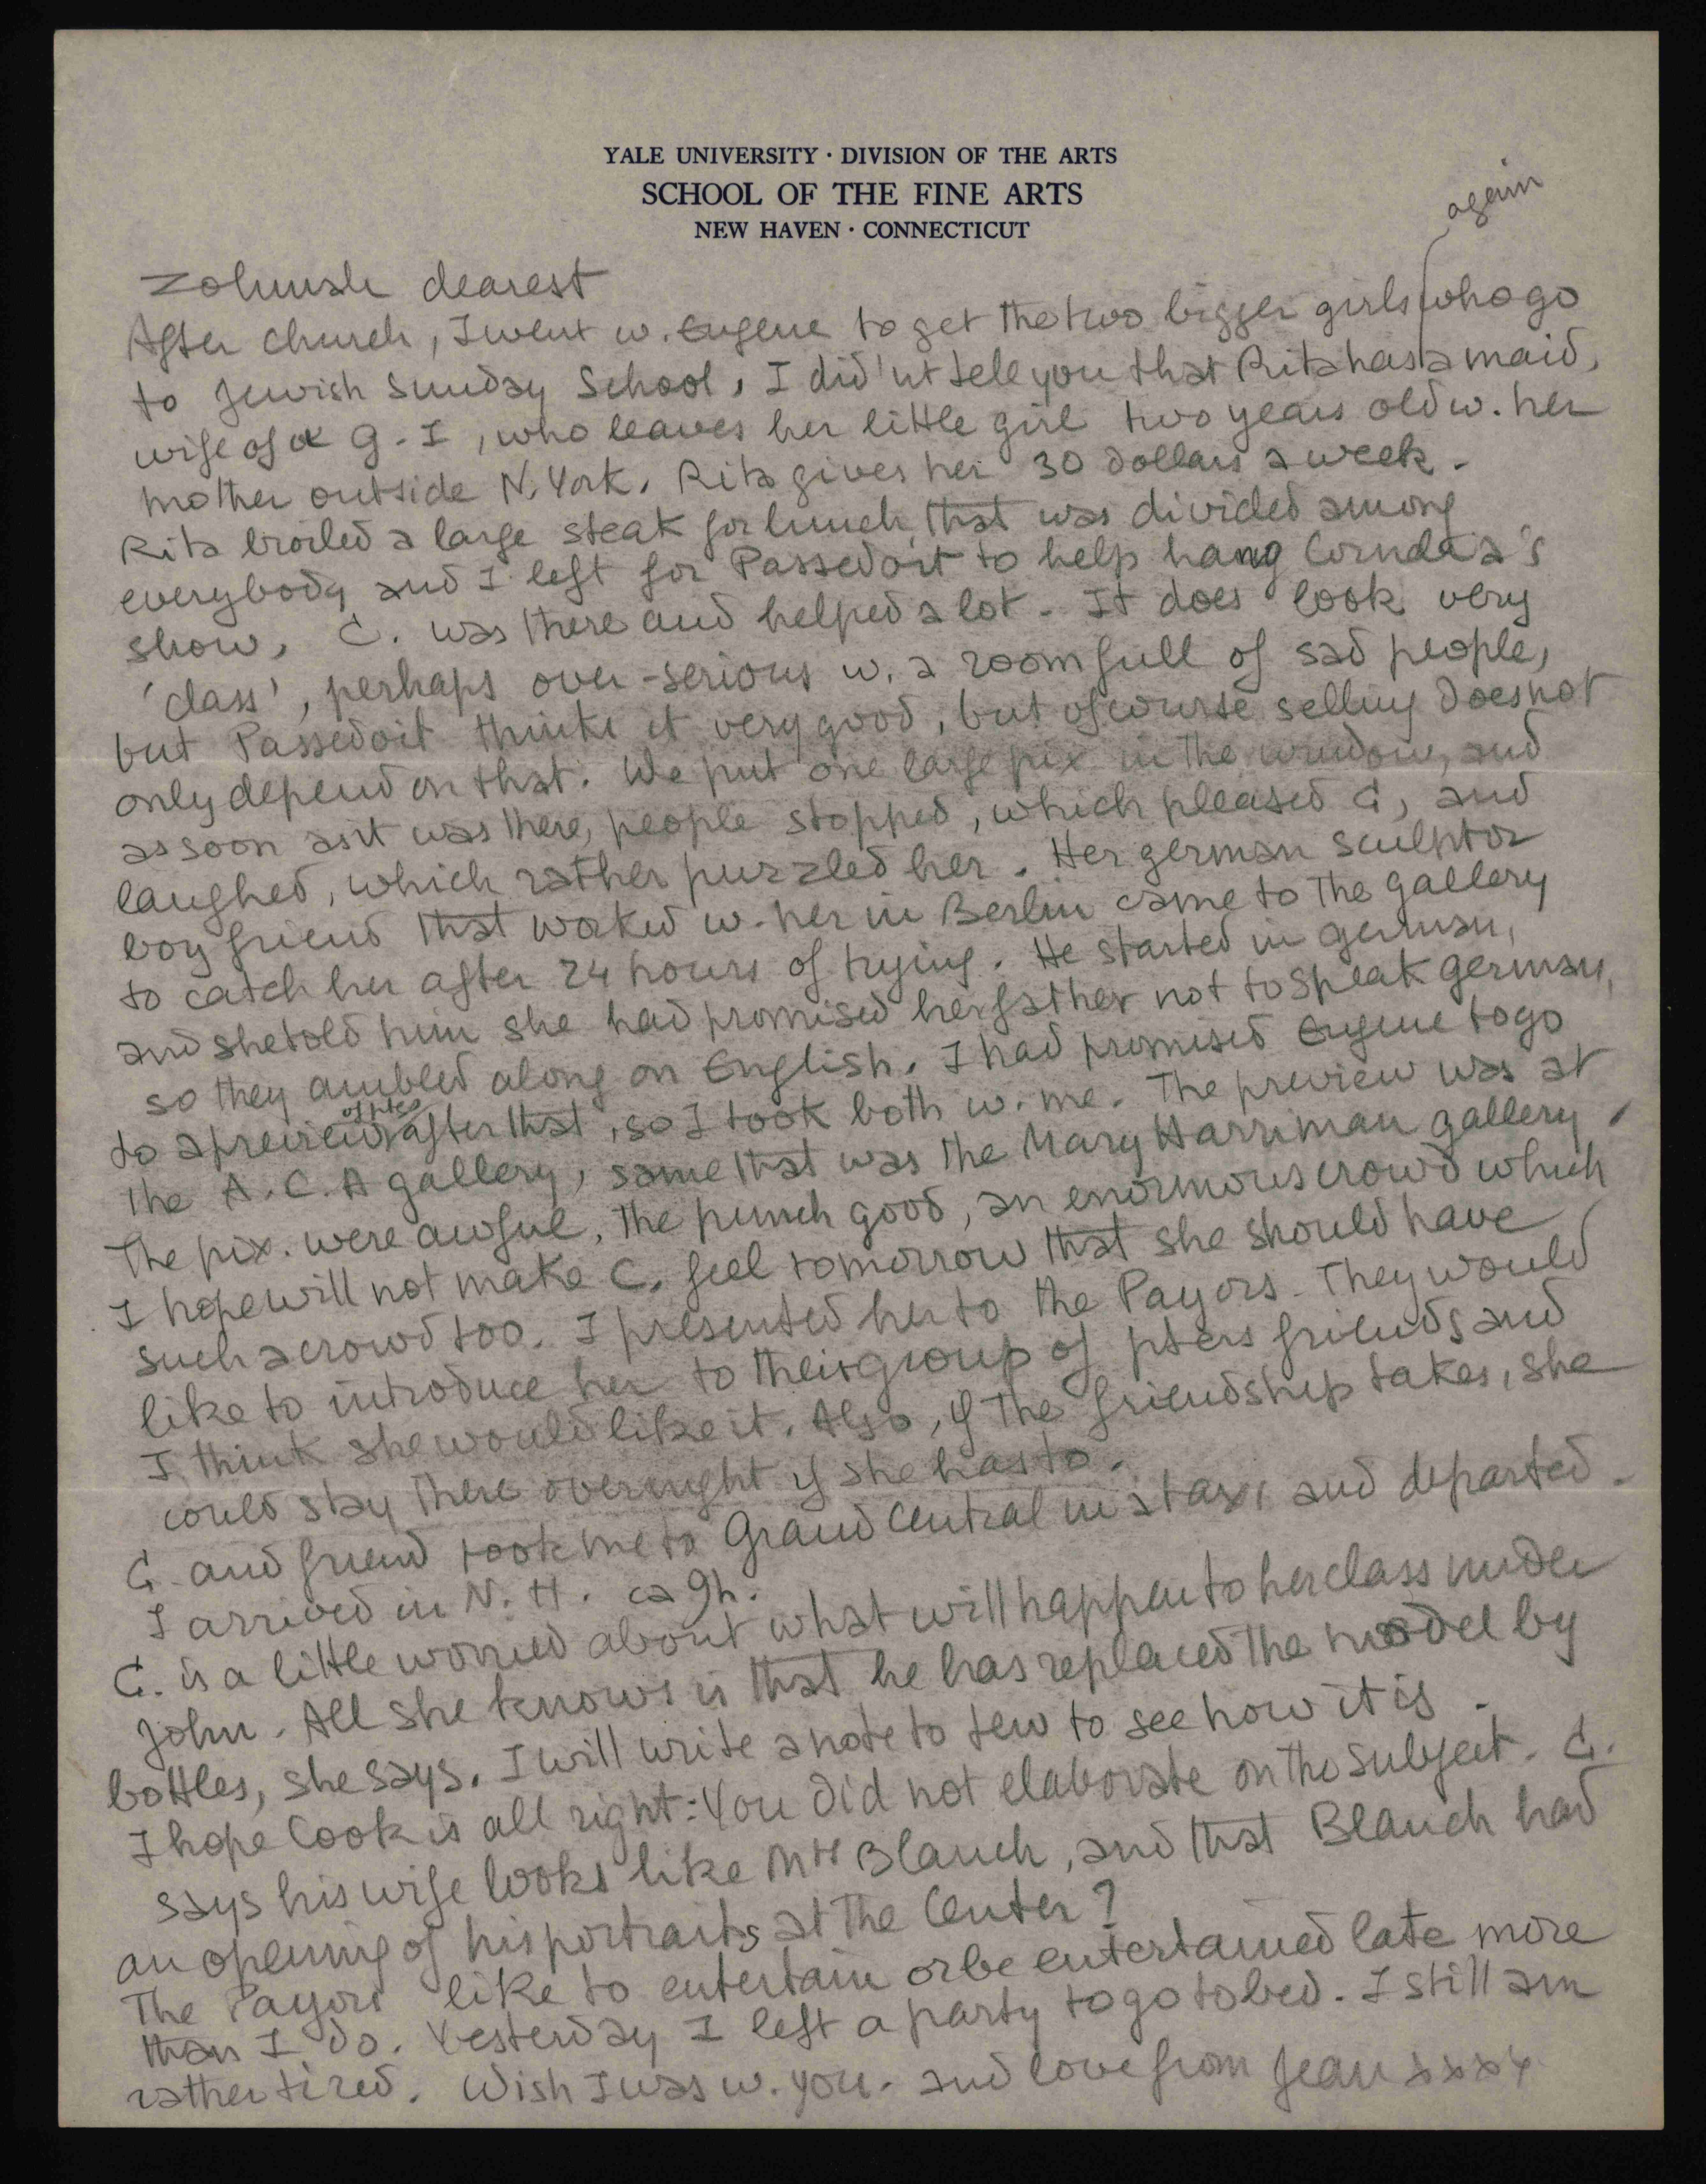 YALE UNIVERSITY · DIVISION OF THE ARTS
SCHOOL OF THE FINE ARTS
NEW HAVEN · CONNECTICUT
again
Zohmah dearest
After church, I went w. Eugene to get the two bigger girls who go
to Jewish Sunday School, I did'nt tell you that Rita has a maid,
wife of a G-I, who leaves her little girl two years old w. her
mother outside N. York. Rita gives her 30 dollars a week.
Rita broiled a large steak for lunch that was divided among
everybody and I left for Passedoit to help hang Cornelia's
show, C. was there and helped a lot. It does look very
'class', perhaps over-serious w. a room full of sad people,
but Passedoit thinks it very good, but of course selling does not
only depend on that. We put one large pix in the window, and
as soon as it was there, people stopped, which pleased C, and
laughed, which rather puzzled her. Her german sculptor
boy friend that worked w. her in Berlin came to the gallery
to catch her after 24 hours of trying. He started in german,
and she told him she had promised her father not to speak german,
so they ambled along on English. I had promised Eugene to go
to a preview after that, so I took both w. me. The preview was at
the A.C.A gallery, same that was the Mary Harriman gallery.
The pix. were awful, the punch good, an enormous crowd which
I hope will not make C. feel tomorrow that she should have
such a crowd too. I presented her to the Payors. They would
like to introduce her to their group of pters friends and
I think she would like it. Also, if the friendship takes, she
could stay there overnight if she has to.
C. and friend took me to Grand Central in a taxi and departed.
I arrived in N. H. ca 9h.
C. is a little worried about what will happen to her class under
John. All she knows is that he has replaced the model by
bottles, she says. I will write a note to Lew to see how it is.
I hope Cook is all right: You did not elaborate on the subject. C.
says his wife looks like Mrs Blanch, and that Blanch had
an opening of his portraits at the Center?
The Payors like to entertain or be entertained late more
than I do. Yesterday I left a party to go to bed. I still am
rather tired. Wish I was w. you. and love from Jean xxxx